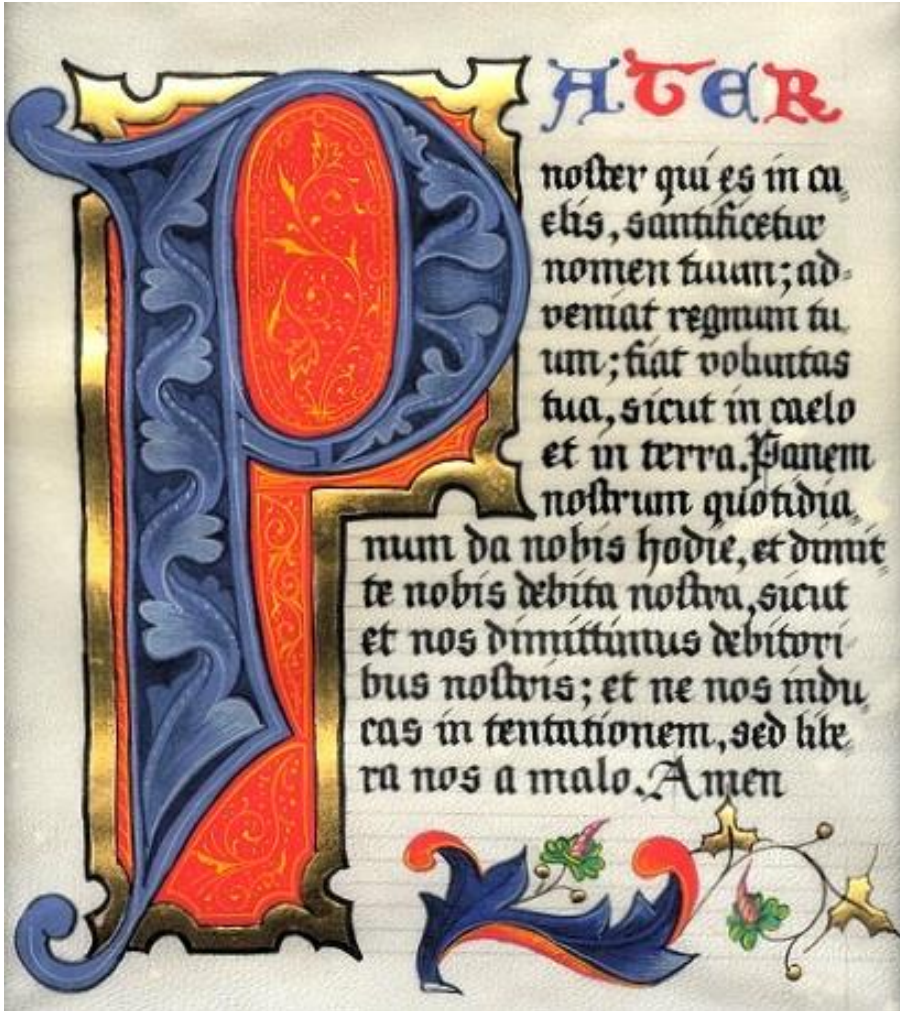 PATER
noster qui es in cæ
elis, santificetur
nomen tuum; ad=
veniat regnum tu
um; fiat voluntas
tua, sicut in caelo
et in terra. Panem
nostrum quotidia
num da nobis hodie, et dimit
te nobis debita nostra, sicut
et nos dimittimus debitori
bus nostris; et ne nos indu
cas in tentationem, sed libe
ra nos a malo. Amen